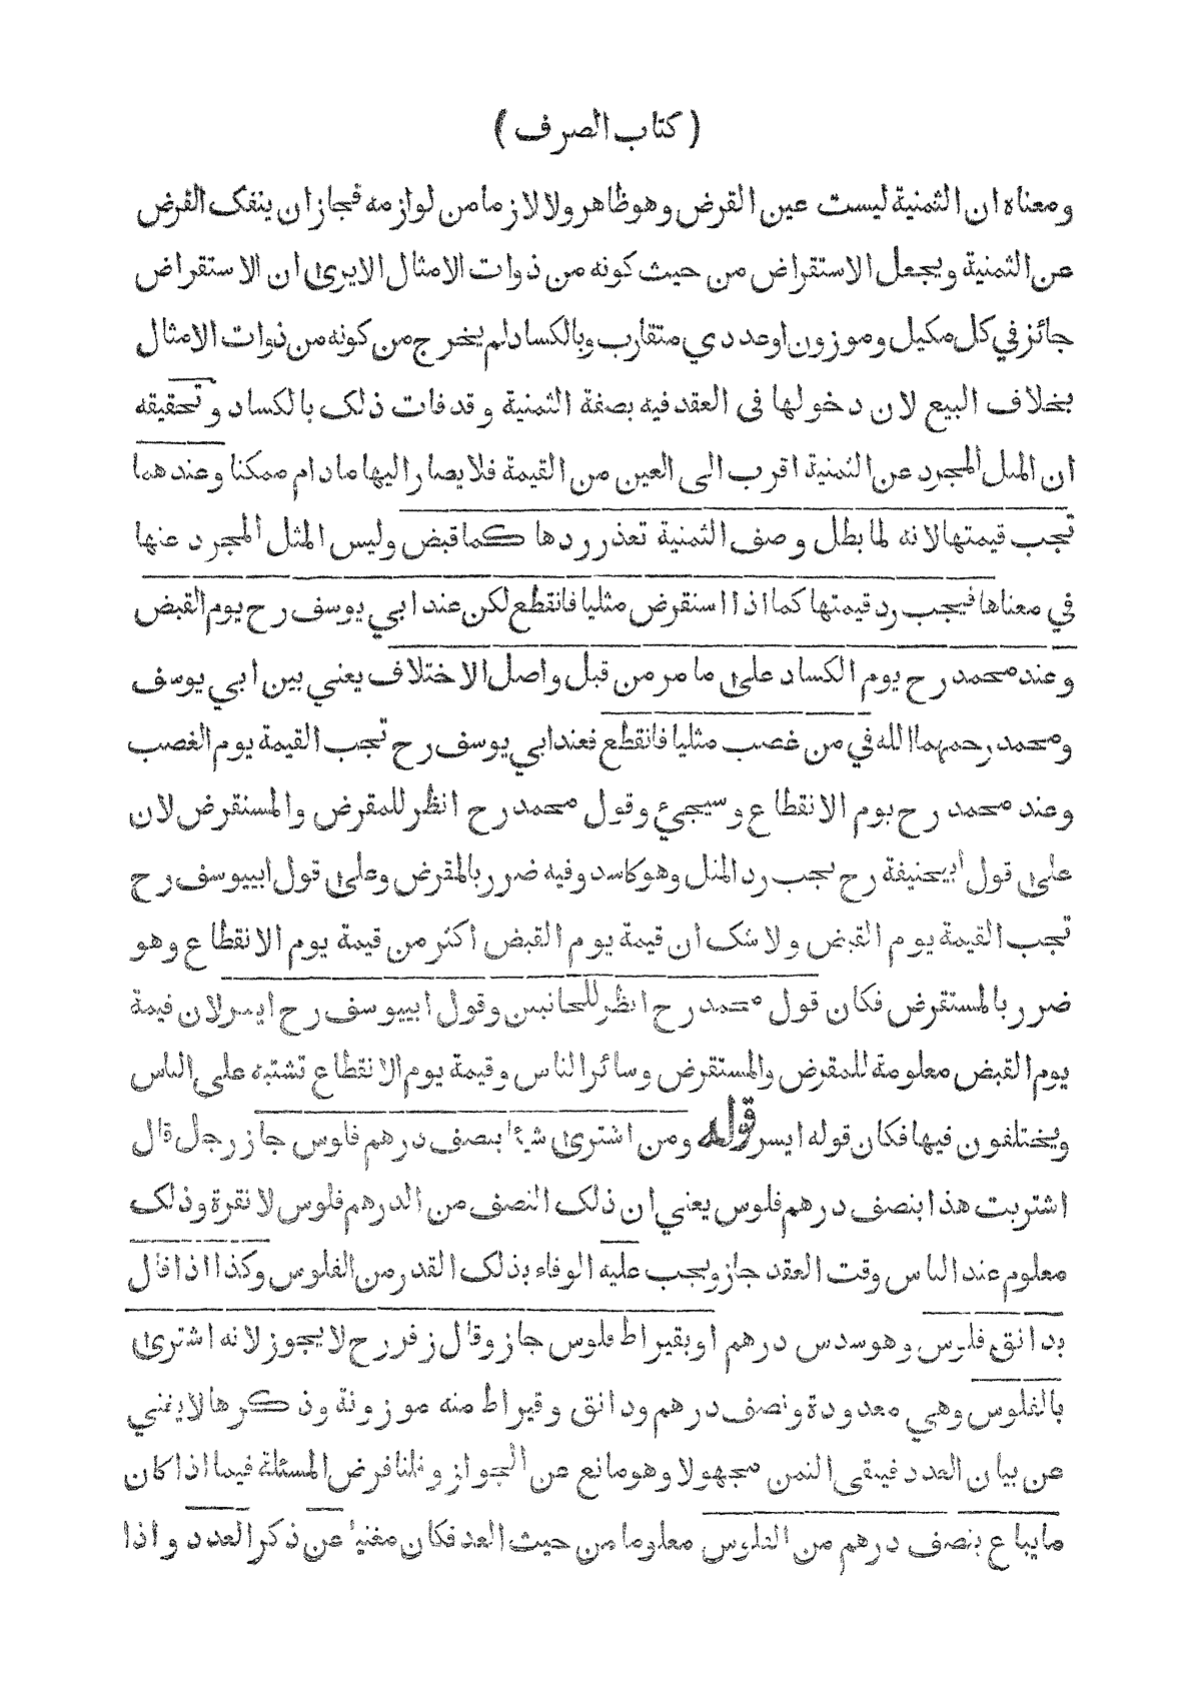 ( كتاب الصرف )
ومعناه ان الثمنية ليست عين القرض وهو ظاهر ولا لازما من لوازمه فجاز ان ينفک القرض
عن الثمنية ويجعل الاستقراض من حيث كونه من ذوات الامثال الايرى ان الاستقراض
جائز في كل مكيل وموزون او عددي متقارب وبالكساد لم يخرج من كونه من ذوات الامثال
بخلاف البيع لان دخولها في العقد فيه بصفة الثمنية وقد فات ذلک بالكساد وتحقيقه
ان المثل المجرد عن الثمنية اقرب الى العين من القيمة فلا يصار اليها مادام ممكنا وعندهما
تجب قيمتها لانه لما بطل وصف الثمنية تعذر ردها كما قبض وليس المثل المجرد عنها
في معناها فيجب رد قيمتها كما اذا استقرض مثليا فانقطع لكن عند ابي يوسف رح يوم القبض
وعند محمد رح يوم الكساد على ما مر من قبل واصل الاختلاف يعني بين ابي يوسف
ومحمد رحمهما الله في من غصب مثليا فانقطع فعند ابي يوسف رح تجب القيمة يوم الغصب
وعند محمد رح يوم الانقطاع وسيجئ وقول محمد رح انظر للمقرض والمستقرض لان
على قول ابيحنيفة رح يجب رد المثل وهو كاسد وفيه ضرر بالمقرض وعلى قول ابييوسف رح
تجب القيمة يوم القبض ولا شک ان قيمة يوم القبض اكثر من قيمة يوم الانقطاع وهو
ضرر بالمستقرض فكان قول محمد رح انظر للجانبين وقول ابييوسف رح ايسر لان قيمة
يوم القبض معلومة للمقرض والمستقرض وسائر الناس وقيمة يوم الانقطاع تشتبه على الناس
ويختلفون فيها فكان قوله ايسر قوله ومن اشترى شيئا بنصف درهم فلوس جاز رجل قال
اشتريت هذا بنصف درهم فلوس يعني ان ذلک النصف من الدرهم فلوس لا نقرة وذلک
معلوم عند الناس وقت العقد جاز ويجب عليه الوفاء بذلک القدر من الفلوس وكذا اذا قال
بدانق فلوس وهو سدس درهم او بقيراط فلوس جاز وقال زفر رح لا يجوز لانه اشترى
بالفلوس وهي معدودة ونصف درهم ودانق وقيراط منه موزونة وذكرها لا يغني
عن بيان العدد فيبقى الثمن مجهولا وهو مانع عن الجواز وقلنا فرض المسئلة فيما اذا كان
ما يباع بنصف درهم من الفلوس معلوما من حيث العد فكان مغنيا عن ذكر العدد واذا